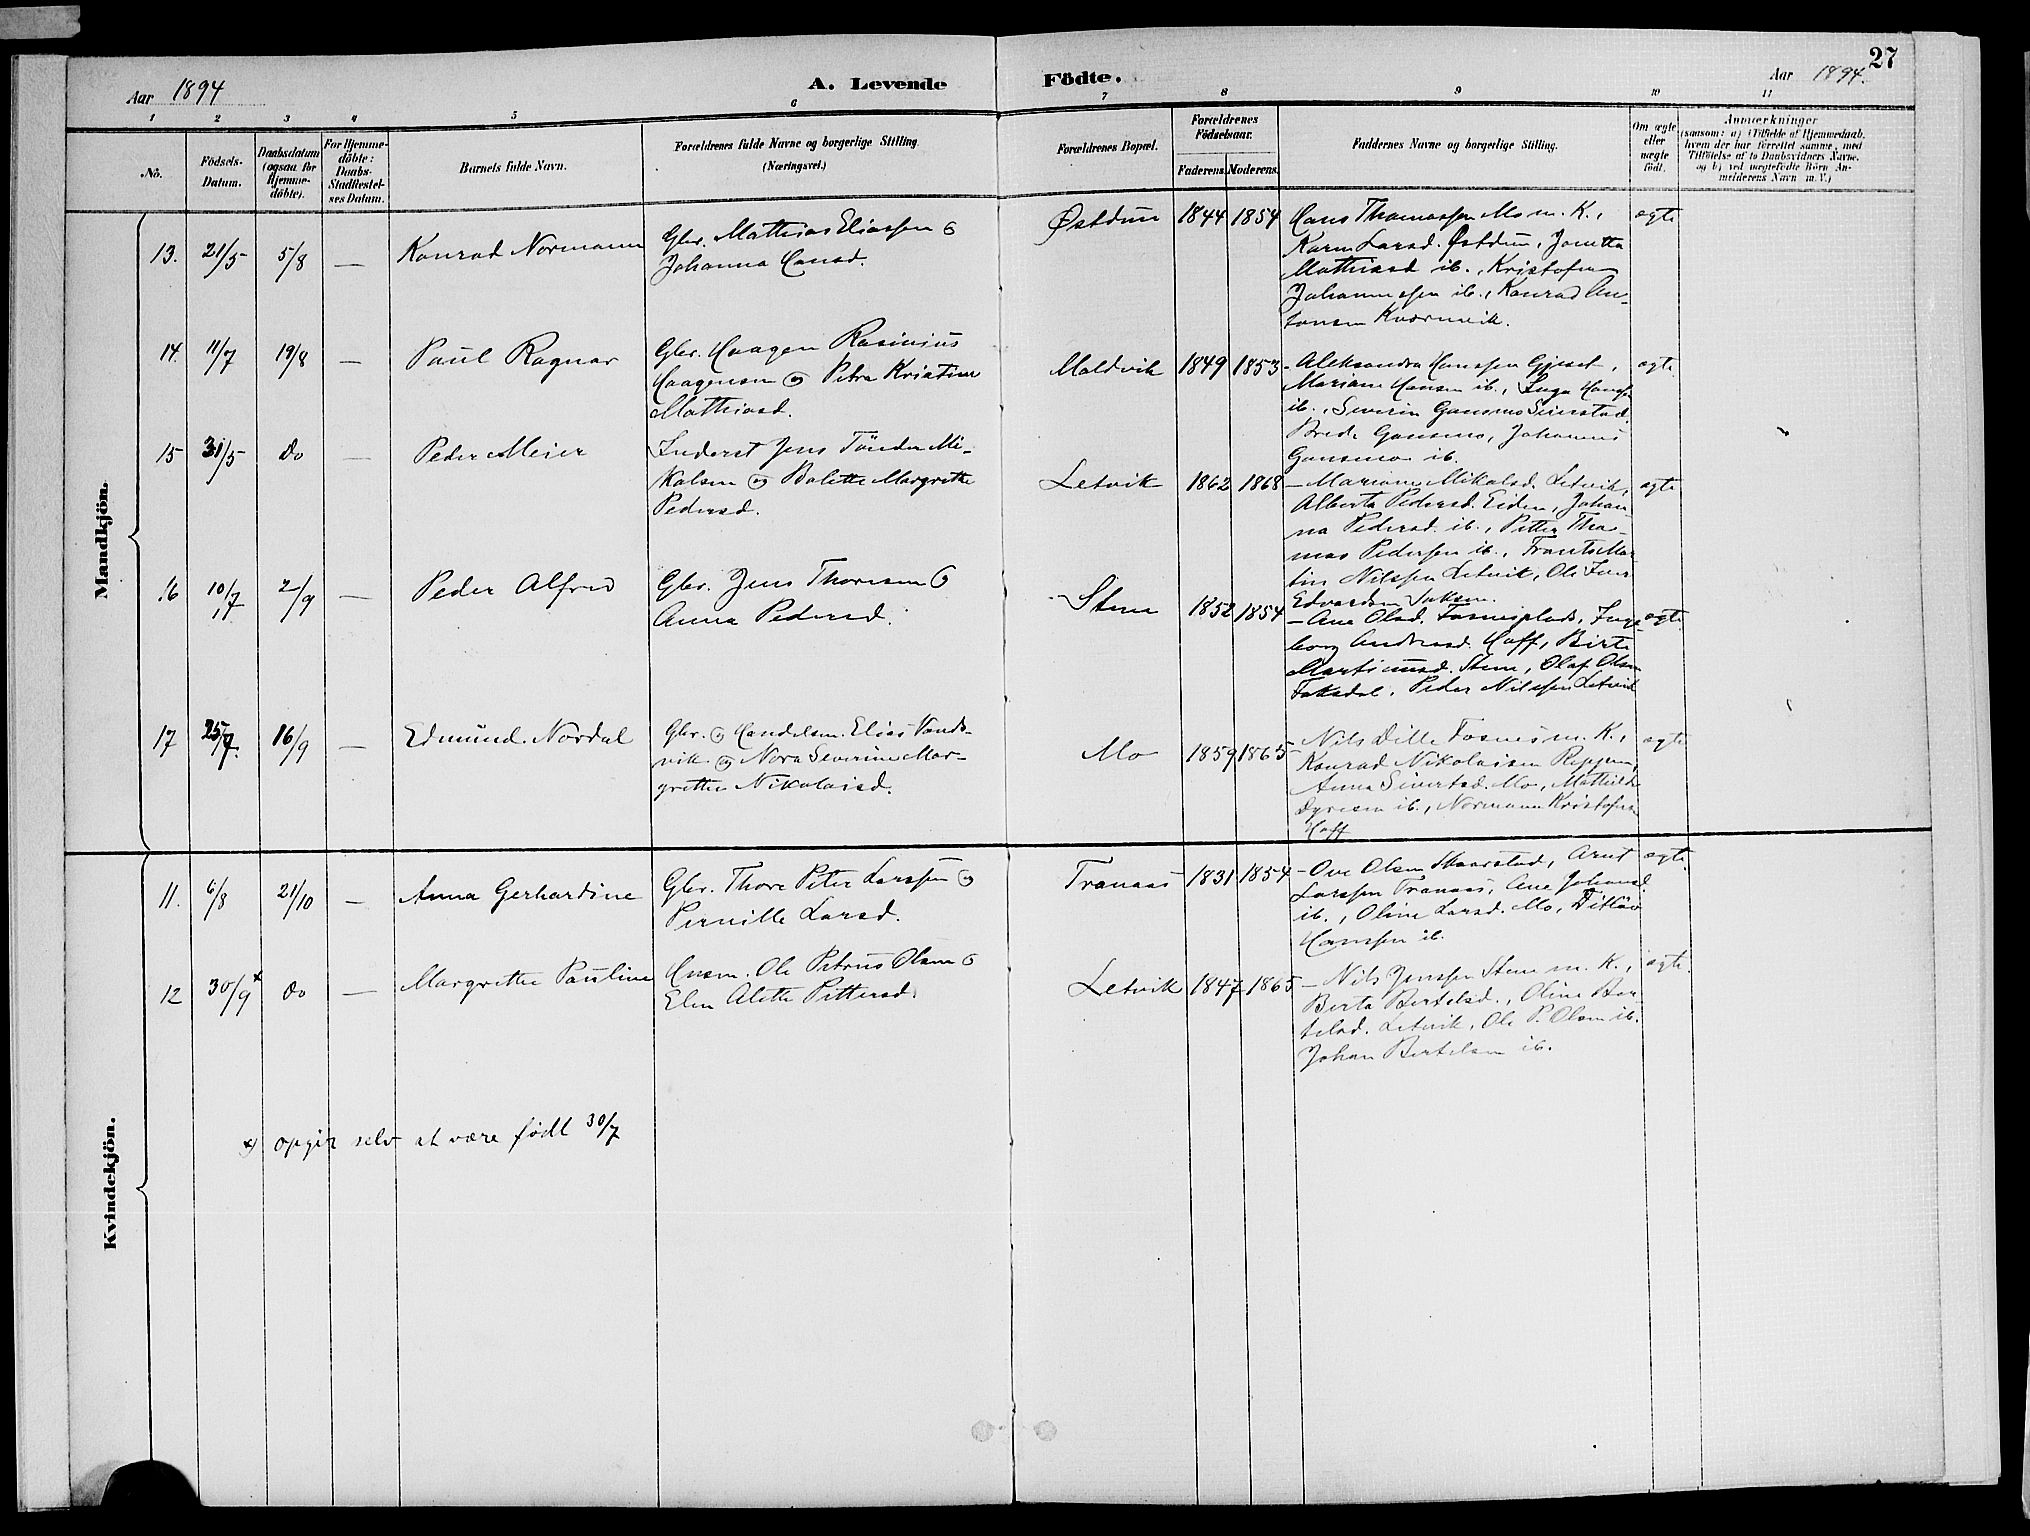 27
Aar 1894 A. Levende Födte. Aar 1894.
1 2 3 4 5 6 7 8 9 10 11
No.
Födsels-Datum.
Daabsdatum (ogsaa for Hjemme-döbte).
For Hjemme-döbte: Daabs-Stadfæstel-ses Datum.
Barnets fulde Navn.
Forældrenes fulde Navne og borgerlige Stilling.
(Næringsvei.)
Forældrenes Bopæl.
Forældrenes Födselsaar.
Faderens. Moderens.
Faddernes Navne og borgerlige Stilling.
Om ægte eller uægte födt.
Anmærkninger
(saasom: a) i Tilfælde af Hjemmedaab,
hvem der har forrettet samme, med
Tilföielse af to Daabsvidners Navne,
og b) ved uægtefödte Börn An-
melderens Navn m. V.)
Mandkjön.
13. 21/5 5/8 — Konrad Normann
Gbr. Mathias Eliassen o
Johanna Hansd.
Østduun 1844 1854
Hans Thomassen Mo m. K.,
Karen Larsd. Østduun, Jonetta
Mathiasd ib., Kristofer
Johannessen ib., Konrad An-
tonsen Kvernvik.
ægte
14. 11/7 19/8 — Paul Ragnar
Gbr. Haagen Rasinius
Haagensen og Petra Kristine
Mathiasd.
Maldvik 1849 1853
- Aleksandra Hanssen Gjeset,
Mariane Hansen ib., Inga Hanssen
ib., Severin Gansmo Seierstad
Brede Gansmo, Johannes
Gansmo ib.
ægte
15 31/5 do — Peder Meier
Inderst Jens Tönder Mi-
kalsen og Balette Margrethe
Pedersd.
Letvik 1862 1868
- Mariane Mikalsd. Letvik,
Alberta Pedersd. Eiden, Johan-
na Pedersd. ib., Petter Tho-
mas Pedersen ib., Frants Mar-
tin Nilssen Letvik, Ole Iver
Edvardsen
ægte
16 10/7 2/9 — Peder Alfred
Gbr. Jens Thoresen o
Anna Pedersd.
Stene 1852 1854
- Ane Olsd. Fosnesplads, Inge-
borg Andreasd. Hoff, Birte
Martinusd. Stene, Olaf Olsen
Faksdal, Peder Nilssen Letvik
ægte
17 25/7. 16/9 — Edmund Nordal
Gbr. og Handelsm. Elias Vands-
vik og Nora Severine Mar-
grethe Nikolaisd.
Mo 1859 1865
- Nils Dille Fosnes m. K.,
Konrad Nikolaisen Reppen,
Anna Sivertsd. Mo, Mathilde
Dyresen ib., Normann Kristofersen
Hoff
ægte
Kvindekjön.
11. 6/8 21/10 — Anna Gerhardine
Gbr. Thore Peter Larssen og
Pernille Larsd.
Tranaas 1831 1854
- Ove Olsen Skaarstad, Arnt
Larssen Tranaas, Ane Johansd.
ib., Oline Larsd. Mo, Ditlöv
Hanssen ib.
ægte
12 30/9 x do — Margrethe Pauline
Husm. Ole Petrus Olsen o
Elen Alette Pettersd.
Letvik 1847 1865
- Nils Jenssen Stene m. K.,
Berta Bertelsd., Oline Ber-
telsd. Letvik, Ole P. Olsen ib.
Johan Bertelsen ib.
ægte
x) opgir selv at være født 30/7